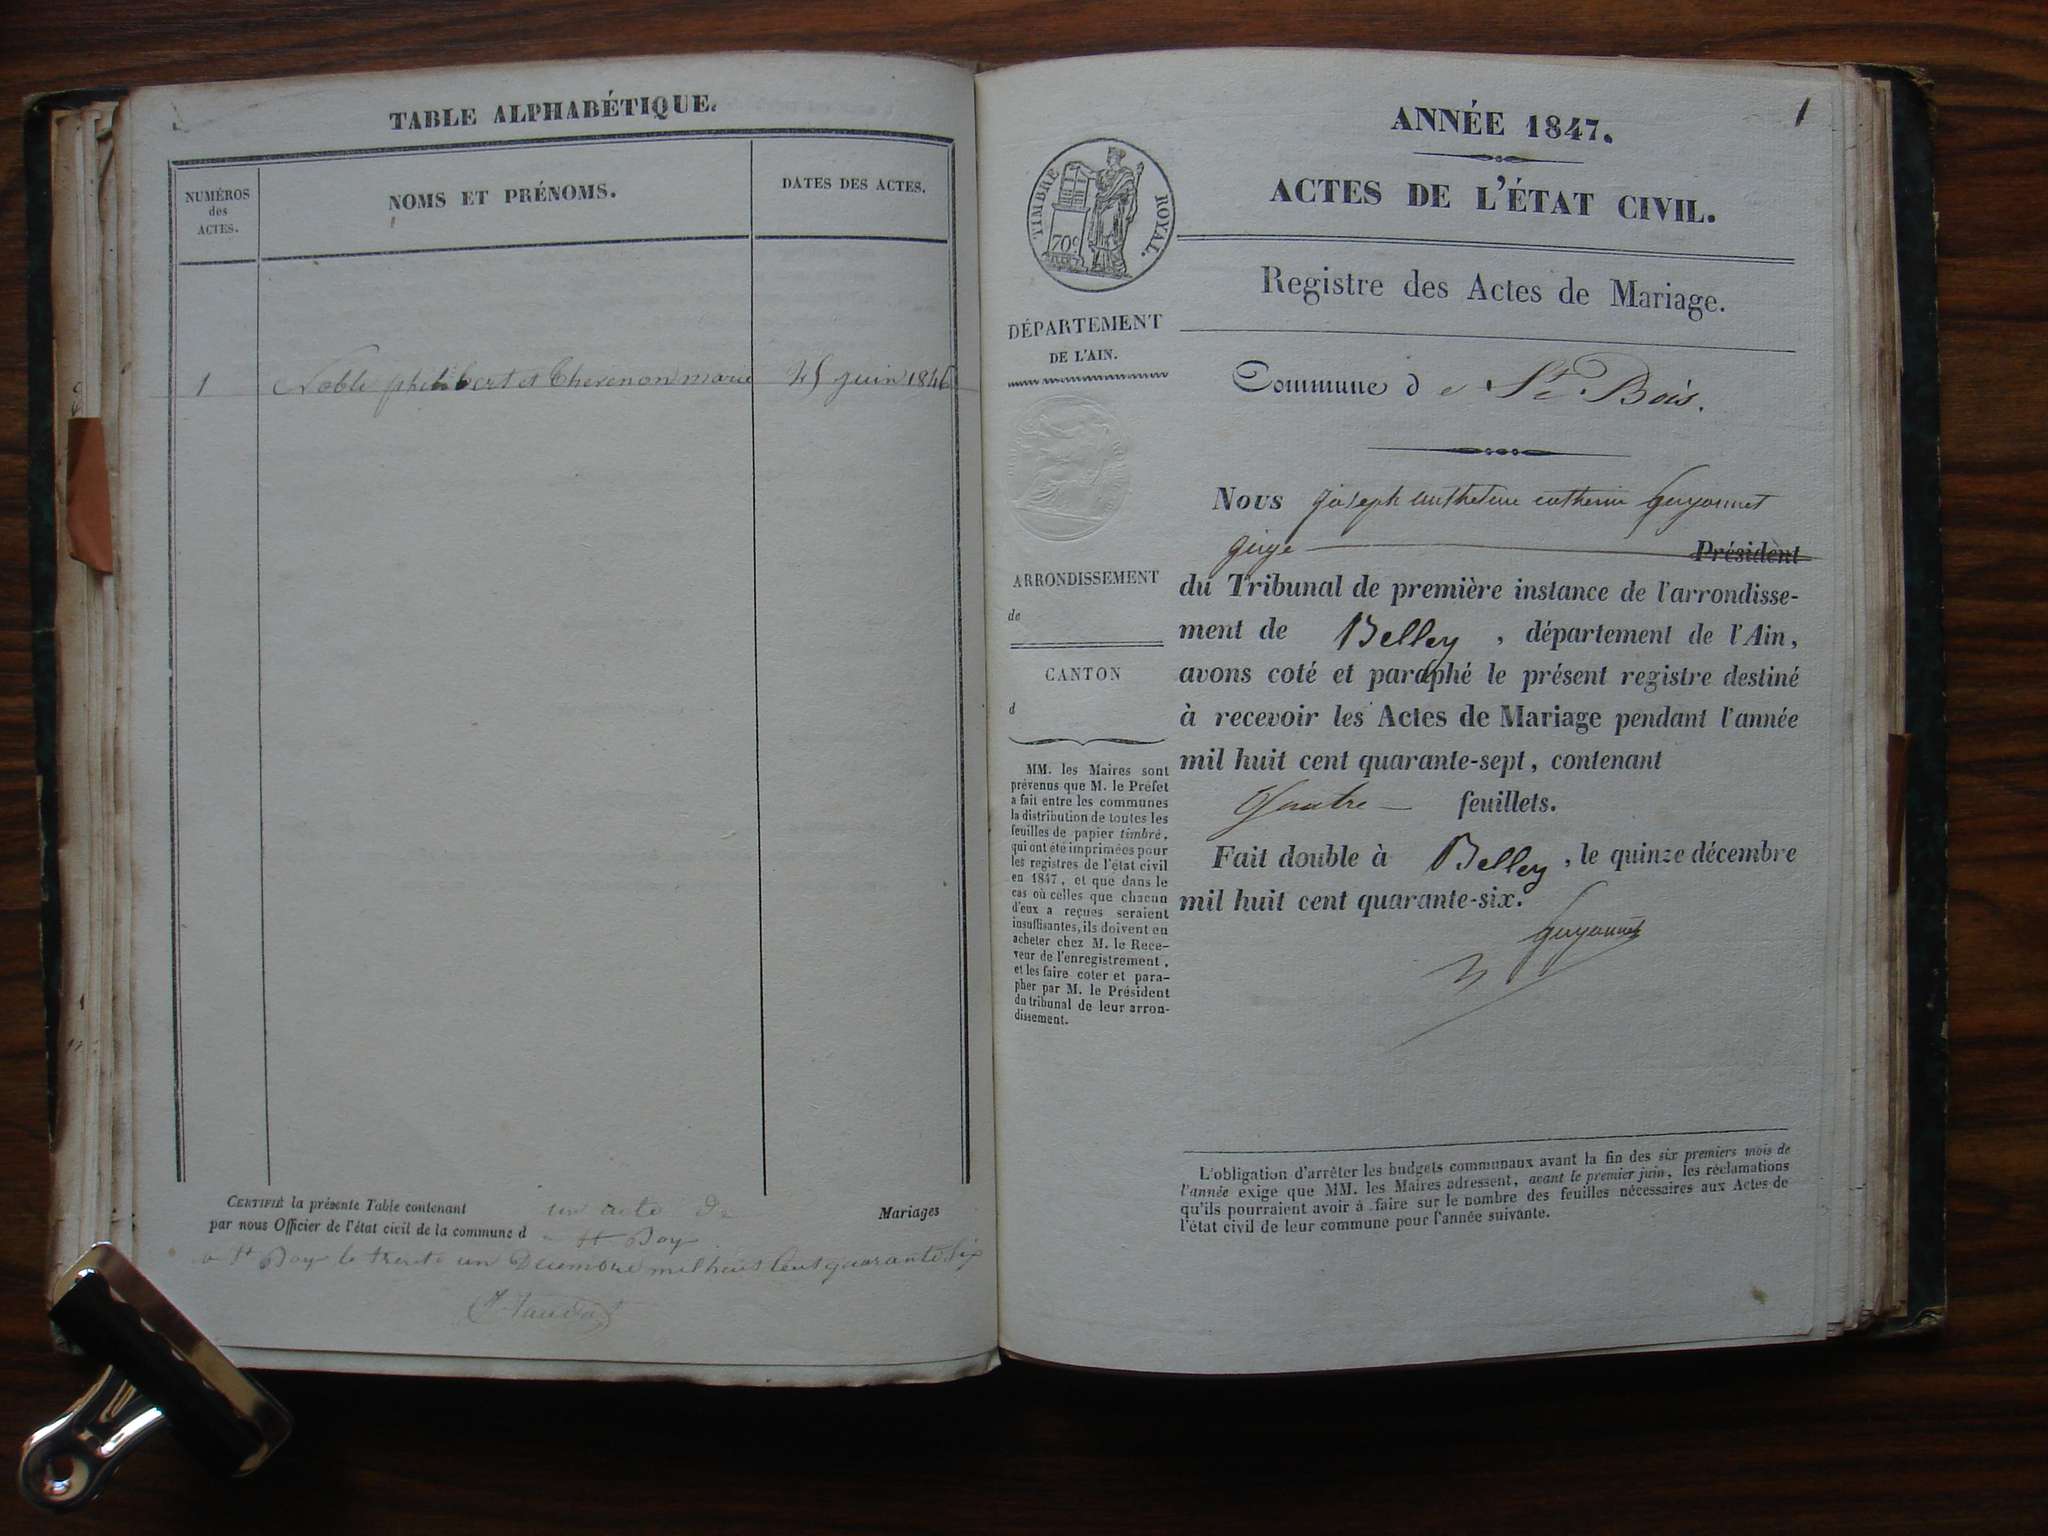 TABLE ALPHABÉTIQUE.
NUMÉROS
des
ACTES.
NOMS ET PRÉNOMS.
DATES DES ACTES.
1 Noble philibert et Thevenon marie 25 juin 1846
CERTIFIÉ la présente Table contenant un acte De Mariages
par nous Officier de l'état civil de la commune d e St Boy
a St Boy le trente un Décembre mil huit cent quarante Six
1
ANNÉE 1847.
ACTES DE L'ÉTAT CIVIL.
TIMBRE ROYAL.
70c
Registre des Actes de Mariage.
DÉPARTEMENT
DE L'AIN.
Commune d e St Bois.
ARRONDISSEMENT
de
CANTON
d
MM. les Maires sont
prévenus que M. le Préfet
a fait entre les communes
la distribution de toutes les
feuilles de papier timbré,
qui ont été imprimées pour
les registres de l'état civil
en 1847, et que dans le
cas où celles que chacun
d'eux a reçues seraient
insuffisantes, ils doivent en
acheter chez M. le Rece-
veur de l'enregistrement,
et les faire coter et para-
pher par M. le Président
du tribunal de leur arron-
dissement.
Nous Joseph anthelme catherin Guyonnet
juge Président
du Tribunal de première instance de l'arrondisse-
ment de Belley, département de l'Ain,
avons coté et paraphé le présent registre destiné
à recevoir les Actes de Mariage pendant l'année
mil huit cent quarante-sept, contenant
Quatre feuillets.
Fait double à Belley, le quinze décembre
mil huit cent quarante-six.
Guyonnet
L'obligation d'arrêter les budgets communaux avant la fin des six premiers mois de
l'année exige que MM. les Maires adressent, avant le premier juin, les réclamations
qu'ils pourraient avoir à faire sur le nombre des feuilles nécessaires aux Actes de
l'état civil de leur commune pour l'année suivante.